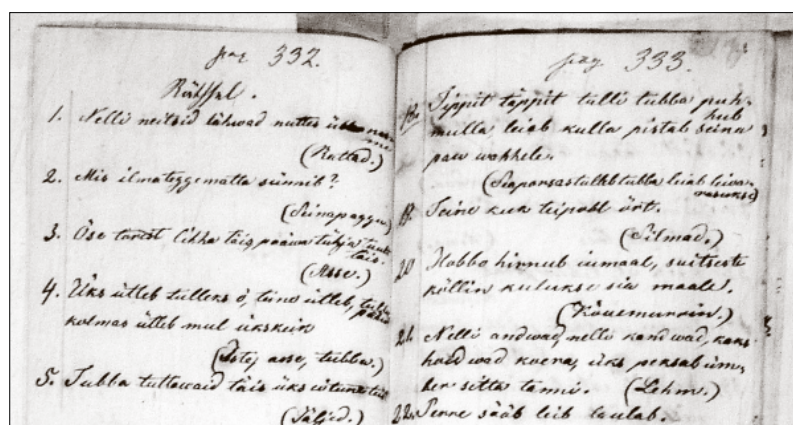 pag 332.
Räthsel.
1. Nelli neitsid lähwad nuttes üht
(Rattad.)
2. Mis ilmateggematta sünnib?
(Seinapaggu)
3. Öse tarest likha täis, pääwa tühja
täis.
(Asse.)
4. Üks ütleb tulleks ö, teine ütleb,
kolmas ütleb mul ükskeik
(Istej asse, tubba.)
5. Tubba tuttawaid täis üks
(Täljed.)
pag 333.
Tippit täppit tulli tubba puh-
hub
mulla leiab kulla pistab seina
paw wakkele.
(Siaparsas tulleb tubba leiab leiwa
rasukse)
19. Teine kuk teipohl ört.
(Silmad.)
20 Hobbo hirnub iumaal, suitseste
kollin kulukse sia maale.
(Köuemurrin.)
21. Nelli andwad, nelli kandwad, kaks
haidwad koera, üks peksab üm-
ber sitta tanni. (Lehm.)
22. Penne sääb leib laulab.